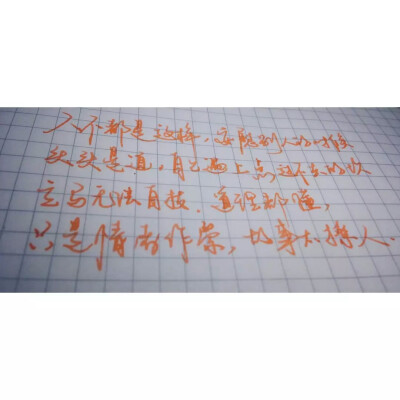 都是这样，安慰别人的时候
头头是道，自己遇上点过不去的坎
立马无法自拔，道理都懂，
只是情绪作祟，故事太撩人.